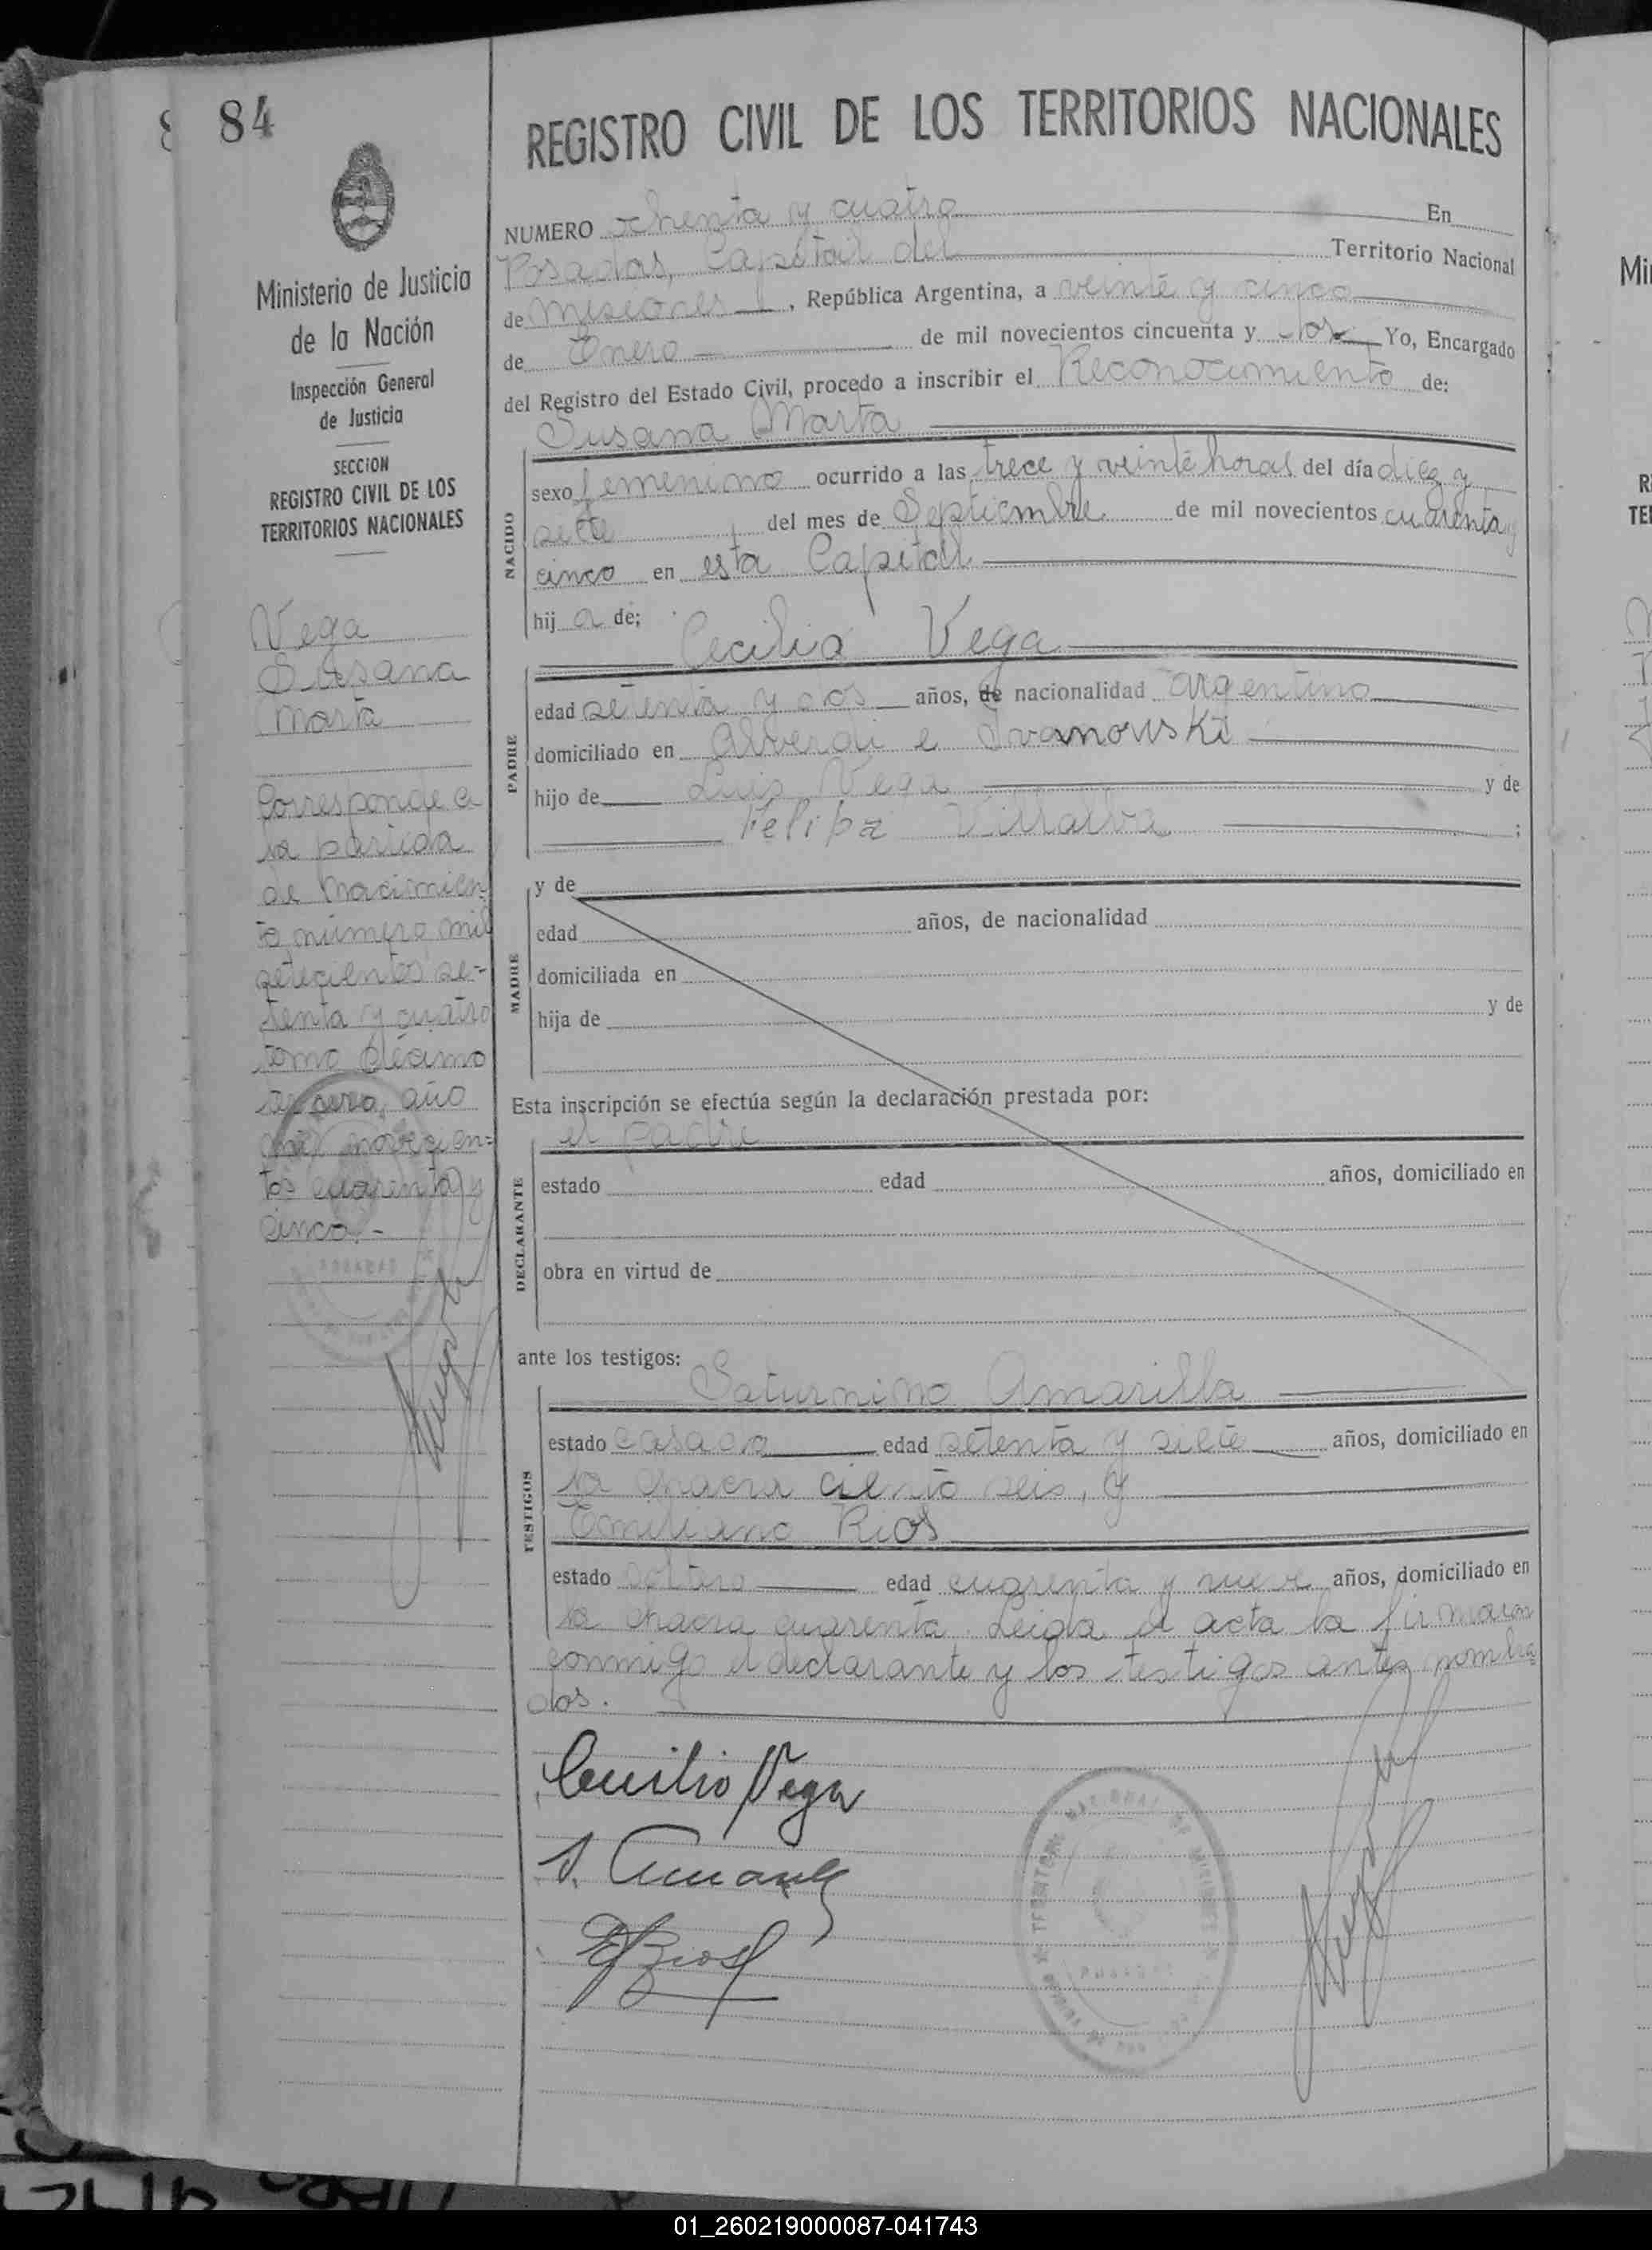 84
Ministerio de Justicia
de la Nación
Inspección General
de Justicia
SECCION
REGISTRO CIVIL DE LOS
TERRITORIOS NACIONALES
Vega
Susana
Marta
Corresponde a
la partida
de Nacimien
to número mil
setecientos se-
tenta y cuatro
tomo décimo
tercero, año
mil novecien=
tos cuarenta y
cinco.-
REGISTRO CIVIL DE LOS TERRITORIOS NACIONALES
NUMERO ochenta y cuatro En
Posadas, Capital del Territorio Nacional
de Misiones, República Argentina, a veinte y cinco
de Enero de mil novecientos cincuenta y dos Yo, Encargado
del Registro del Estado Civil, procedo a inscribir el Reconocimiento de:
Susana Marta
NACIDO
sexo femenino ocurrido a las trece y veinte horas del día diez y
siete del mes de Septiembre de mil novecientos cuarenta y
cinco en esta Capital
hij a de;
Cecilio Vega
PADRE
edad setenta y dos años, de nacionalidad argentino
domiciliado en Alverdi e Ivanowski
hijo de Luis Vega y de
Felipa Villalva ;
MADRE
y de
edad años, de nacionalidad
domiciliada en
hija de y de
Esta inscripción se efectúa según la declaración prestada por:
el padre
DECLARANTE
estado edad años, domiciliado en
obra en virtud de
ante los testigos:
Saturnino Amarilla
TESTIGOS
estado casado edad setenta y siete años, domiciliado en
la chacra ciento seis, y
Emiliano Rios
estado soltero edad cuarenta y nueve años, domiciliado en
la chacra cuarenta. Leida el acta la firmaron
conmigo el declarante y los testigos antes nombra
dos.
Cecilio Vega
S. Amarilla
E Rios
01_260219000087-041743